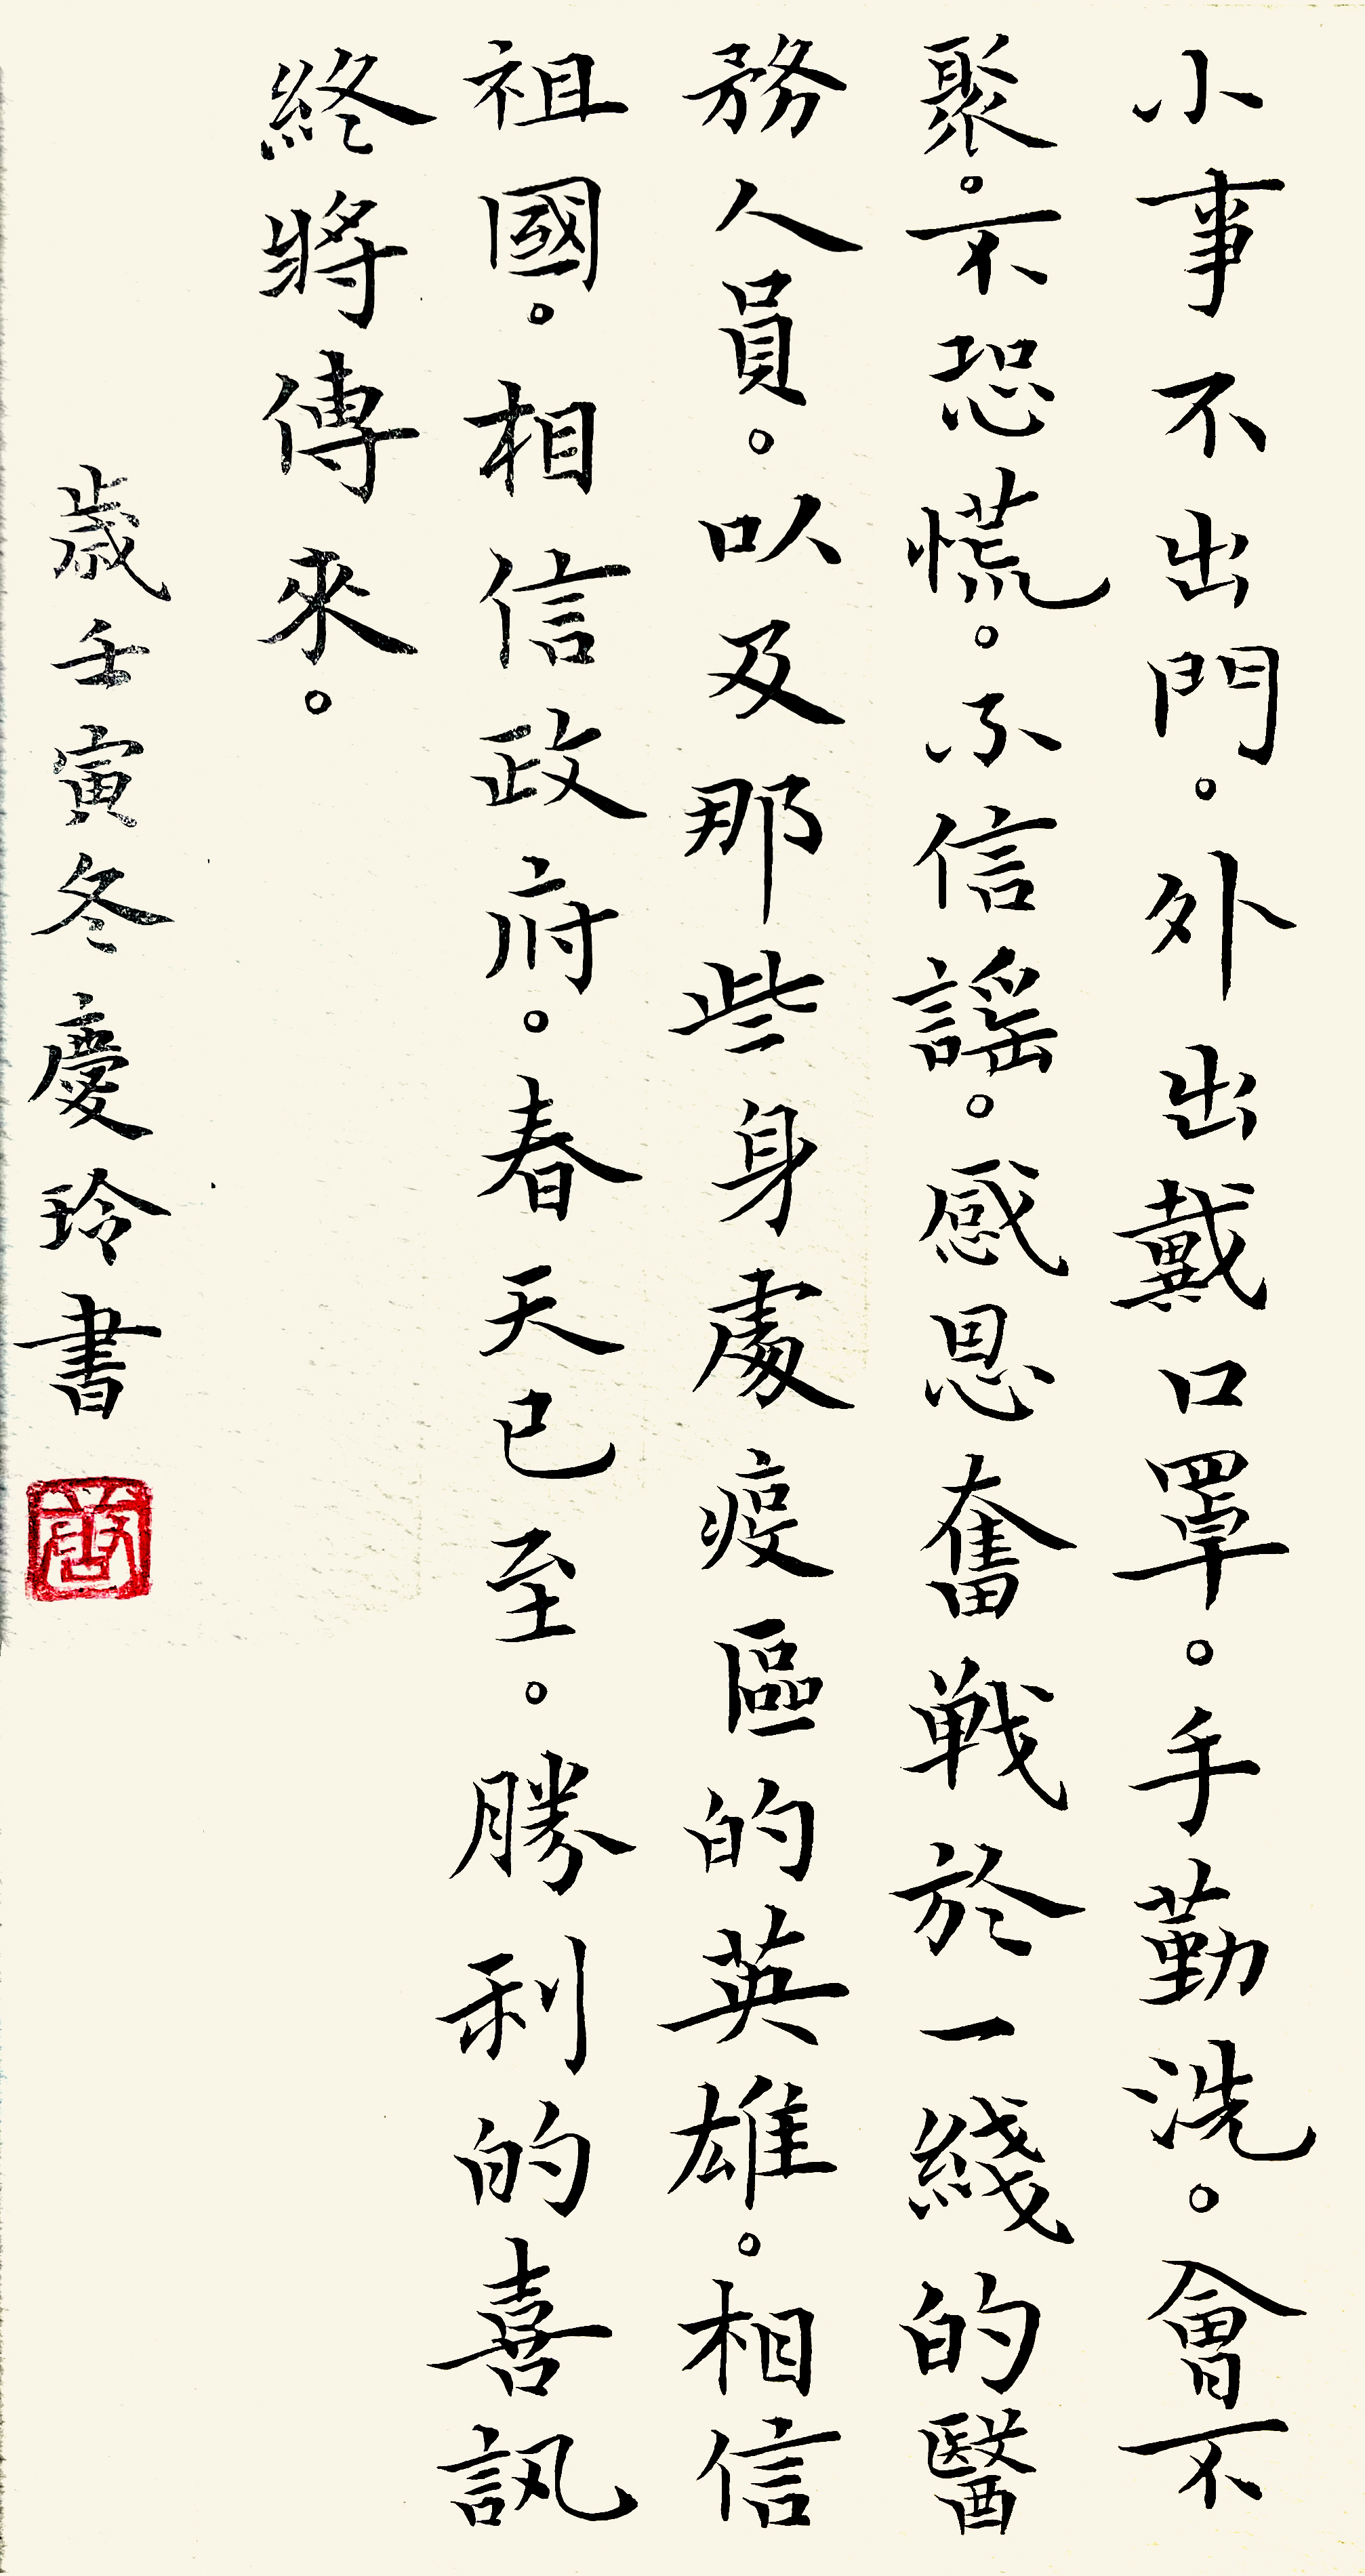 小事不出門。外出戴口罩。手勤洗。會不
聚。不恐慌。不信謡。感恩奮戰於一綫的醫
務人員。以及那些身處疫區的英雄。相信
祖國。相信政府。春天已至。勝利的喜訊
終將傳來。
歲壬寅冬慶玲書